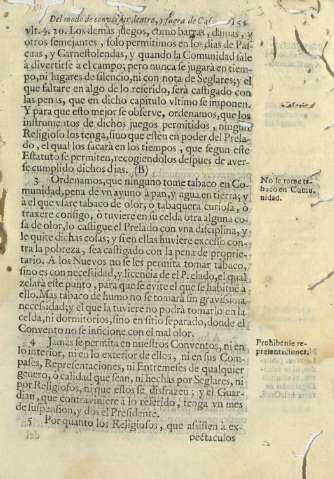 Del modo de conver dentro, y fuera de Cas. 155
vlt. 4. 10. Los demás juegos, como barras, damas, y
otros semejantes, solo permitimos en los dias de Pas-
cuas, y Carnestolendas, y quando la Comunidad sale
à divertirse a el campo; pero nunca se jugarà en tiem-
po, ni lugares de silencio, ni con nota de Seglares; y el
que faltare en algo de lo referido, serà castigado con
las penas, que en dicho capitulo vltimo se imponen.
Y para que esto mejor se observe, ordenamos, que los
instrumentos de dichos juegos permitidos, ningun
Religioso los tenga, sino que esten en poder del Prela-
do, el qual los sacarà en los tiempos, que segun este
Estatuto se permiten, recogiendolos despues de aver-
se cumplido dichos dias. (B)
3 Ordenamos, que ninguno tome tabaco en Co-
munidad, pena de vn ayuno à pan, y agua en tierra; y
à el que vsare tabaco de olor, ò tabaquera curiosa, ò
traxere consigo, ò tuviere en su celda otra alguna co-
sa de olor, lo castigue el Prelado con vna disciplina, y
le quite dichas cosas; y si en ellas huviere excesso con-
tra la pobreza, sea castigado con la pena de proprie-
tario. A los Nuevos no se les permita tomar tabaco,
sino es con necessidad, y licencia de el Prelado, el qual
zelarà este punto, para que se evite el que se habitue à
ello. Mas tabaco de humo no se tomarà sin gravissima
necessidad; y el que la tuviere no podrà tomarlo en la
celda, ni dormitorios, sino en sitio separado, donde el
Convento no se inficione con el mal olor.
No se tome ta-
baco en Comu-
nidad.
4 Jamàs se permita en nuestros Conventos, ni en
lo interior, ni en lo exterior de ellos, ni en sus Com-
pases, Representaciones, ni Entremeses de qualquier
genero, ò calidad que sean, ni hechas por Seglares, ni
por Religiosos, ni que estos se disfrazen; y el Guar-
dian, que contraviniere à lo referido, tenga vn mes
de suspension, y dos el Presidente.
Prohibense re-
presentaciones.
5 Por quanto los Religiosos, que assisten à ex-
pectaculos